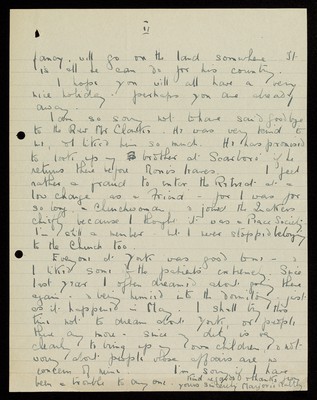 II
fancy, will go on the land somewhere. It
is all he can do for his country.
I hope you will all have a very
nice holiday. perhaps you are already
away.
I am so sorry not to have said goodbye
to the Rev Mr. Clarke. He was very kind to
me, & I liked him so much. He has promised
to look up my brother at Scarboro' if he
returns there before leaves. I feel
rather a fraud to enter the Retreat at a
low charge as a Friend - for I was for
so long a Churchwoman & joined the Quakers
chiefly because I thought it was a Peace Society.
I'm still a member but I never stopped belonging
to the Church too.
Everyone at York was good to me - &
I liked some of the patients extremely. Since
last year I often dreamed about going there
again - & being hurried into the Dormitory, just
as it happened in May. I shall try this
time not to dream about York, or people
there any more - since my duty is so
clearly to bring up my own children, & not
worry about people whose affairs are no
concern of mine. I'm sorry if I have
been a trouble to anyone.
Kind regards & thanks from
yours sincerely Marjorie